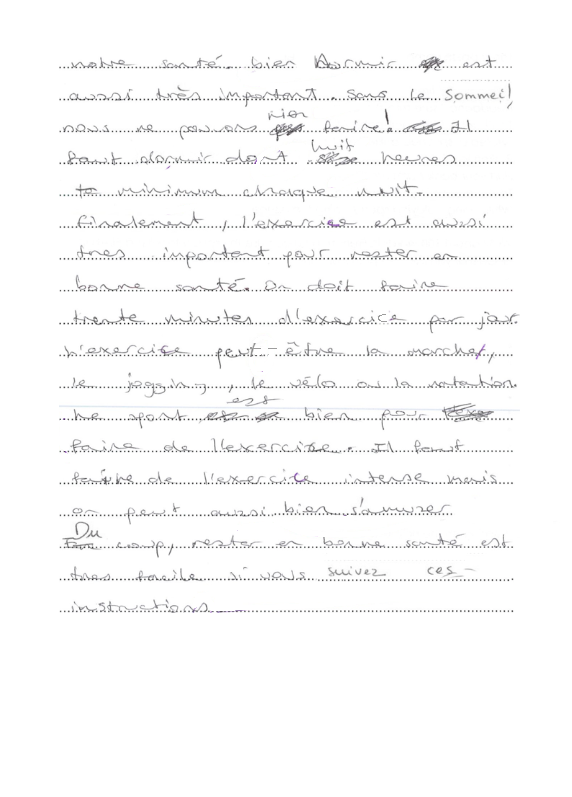 notre santé. bien Dormir est
aussi très important. Sans le sommeil,
nous ne pouvons rien faire! Il
faut dormir dont huit heures
minimum chaque nuit.
Finalement, l'exercice est aussi
tres important pour rester en
bonne santé. On doit faire
trente minutes d'exercice par jour.
L'exercice peut-être la marche,
le jogging, le vélo ou la natation.
Le sport est bien pour
faire de l'exercice. Il faut
faire de l'exercice intense mais
on peut aussi bien s'amuser
Du coup, rester en bonne santé est
tres facile si vous suivez ces
instructions